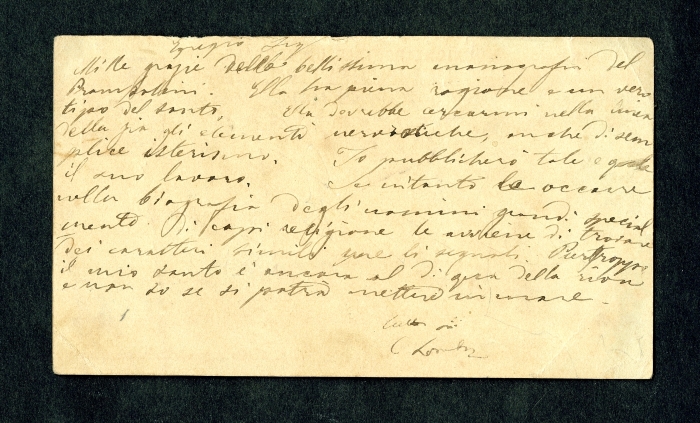 Egregio Sig
Mille grazie della bellissima monografia del
Brampolini. Ella ha piena ragione e un vero
tipo del santo, Ella dovrebbe cercarmi nella linea
della gli elementi anche di sem
plice isterismo. Io pubblicherò tale e quale
il suo lavoro. Se intanto le occorre
nella biografia degli uomini grandi special
mente di capi religione le avviene di trovare
dei caratteri simili me li segnali. Purtroppo
il mio santo è ancora al di qua della riva
e non so se si potrà mettere in mare.
tutto suo
C Lombr